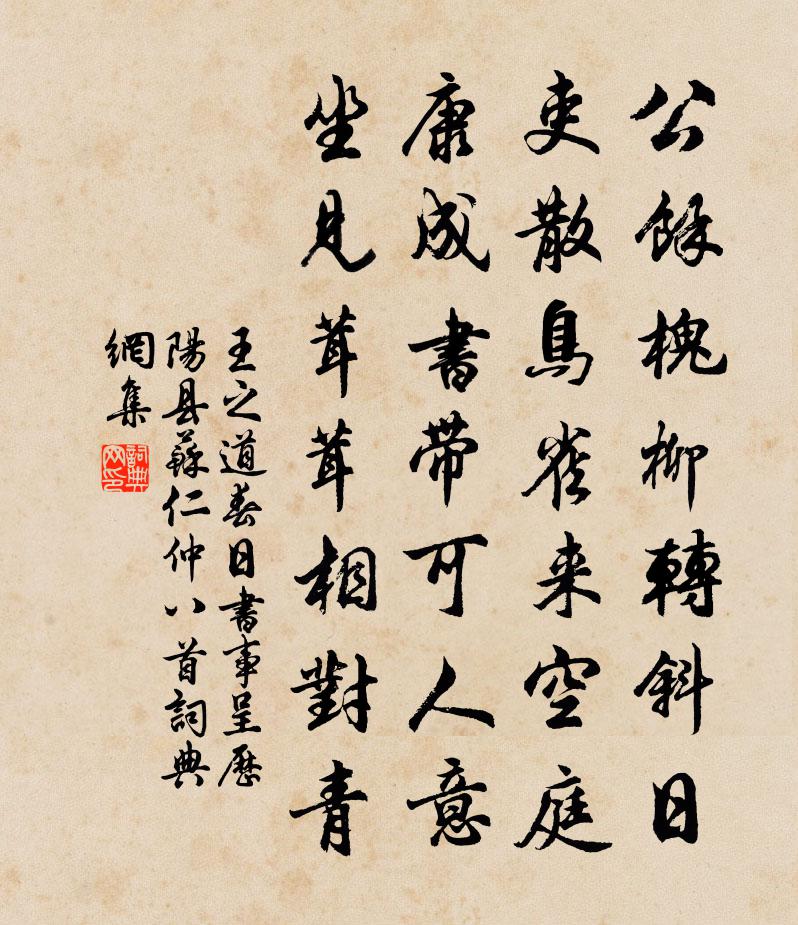 公餘槐柳轉斜日
吏散鳥雀来空庭
康成書带可人意
坐見茸茸相對青
王之道春日書事呈歷
陽县蘇仁仲八首詞典
網集
詞典
网印